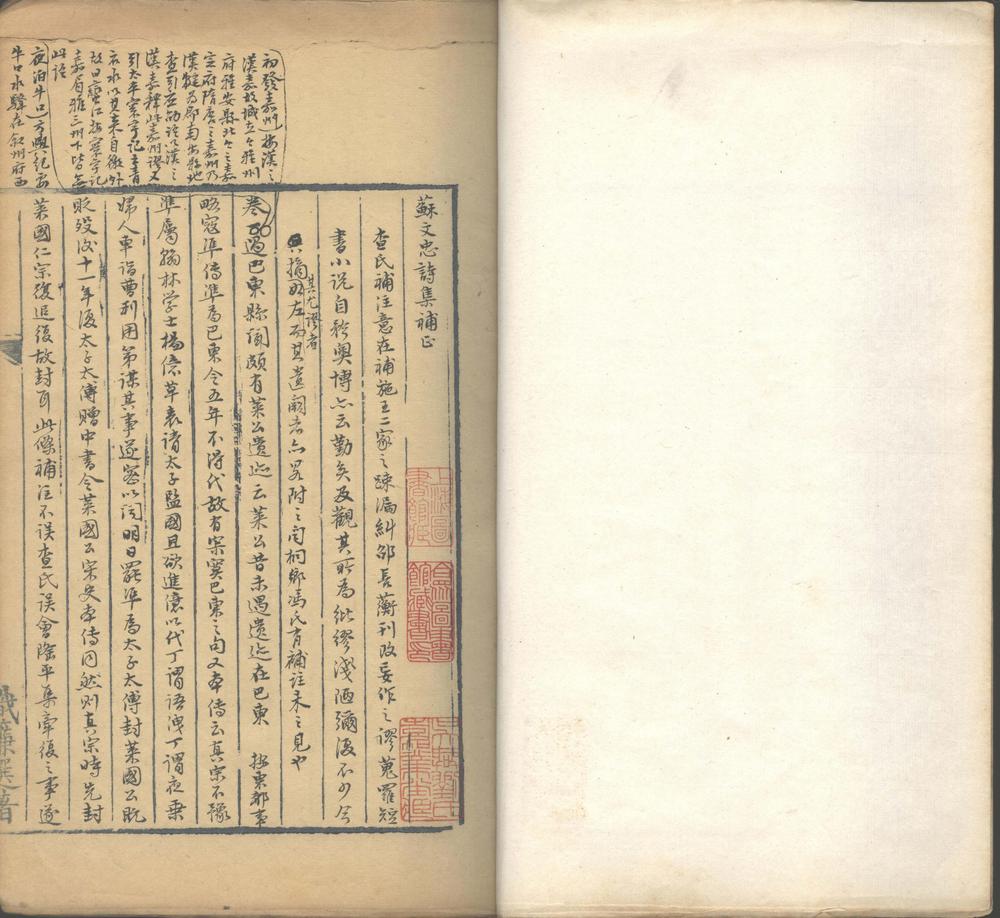 蘇文忠詩集補正
查氏補注意在補施王二家之疎漏糾邵長蘅刊改妄作之謬蒐羅短
書小说自矜奧博亦云勤矣及觀其所為紕繆淺陋彌復不少今
摘如左而其遺闕者亦畧附之聞桐鄉馮氏有補註未之見也
其尤謬者
卷 過巴東縣聞頗有萊公遺迹云萊公昔未遇遺迹在巴東 按東都事
略寇準傳準為巴東令五年不得代故有寂寞巴東之句又本傳云真宗不豫
準屬翰林学士楊億草表請太子監國且欲進億以代丁謂語洩丁謂夜乘
婦人車詣曹利用第謀其事遂密以聞明日罷準為太子太傅封萊國公既
貶歿後十一年復太子太傅贈中書令萊國公宋史本傳同然則真宗時先封
萊國仁宗復追復故封耳此條補注不误查氏误會隆平集牽復之事遂
初發嘉州 按漢之
漢嘉故城立今雅州
府雅安縣北今之嘉
定府隋唐之嘉州乃
漢犍為郡南安縣地
查引左 注以漢之
漢嘉釋此嘉州謬又
引太平寰宇記云青
衣水以其来自徼外
故曰蠻江按寰宇記
嘉眉雅三州下皆無
此語
夜泊牛口 方輿纪要
牛口水驛在叙州府西
上海圖書館藏
合眾圖書館藏書印